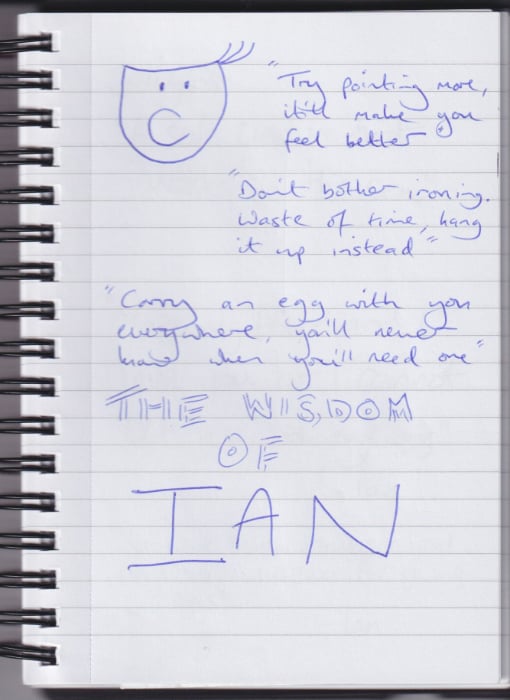 "Try pointing more,
it'll make you
feel better"
"Don't bother ironing.
Waste of time, hang
it up instead"
"Carry an egg with you
everywhere, you'll never
know when you'll need one"
THE WISDOM
OF
IAN